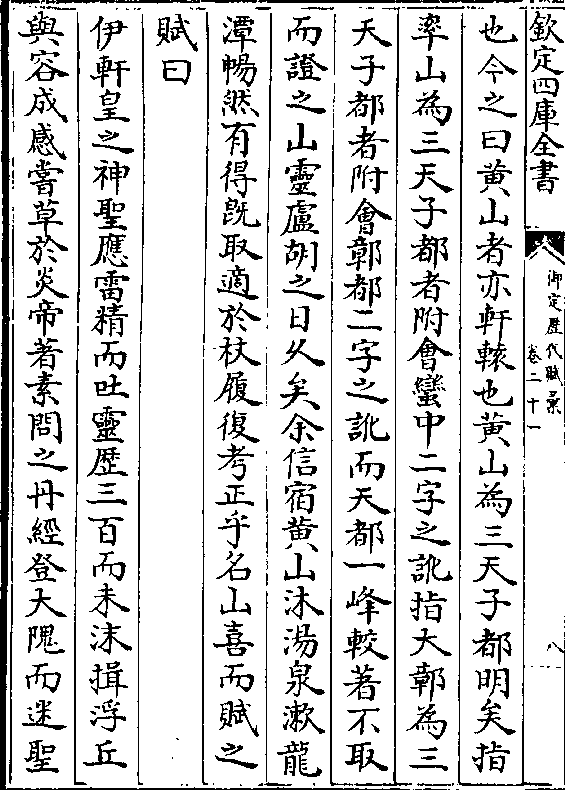 欽定四庫全書
御定歴代賦彙
卷二十一
八
也今之曰黄山者亦軒轅也黄山為三天子都明矣指
率山為三天子都者附會蠻中二字之訛指大鄣為三
天子都者附會鄣都二字之訛而天都一峰較著不取
而證之山靈盧胡之日久矣余信宿黄山沐湯泉漱龍
潭暢然有得既取適於杖履復考正乎名山喜而賦之
賦曰
伊軒皇之神聖應雷精而吐靈歴三百而未沫揖浮丘
與容成感嘗草於炎帝著素問之丹經登大隗而迷聖